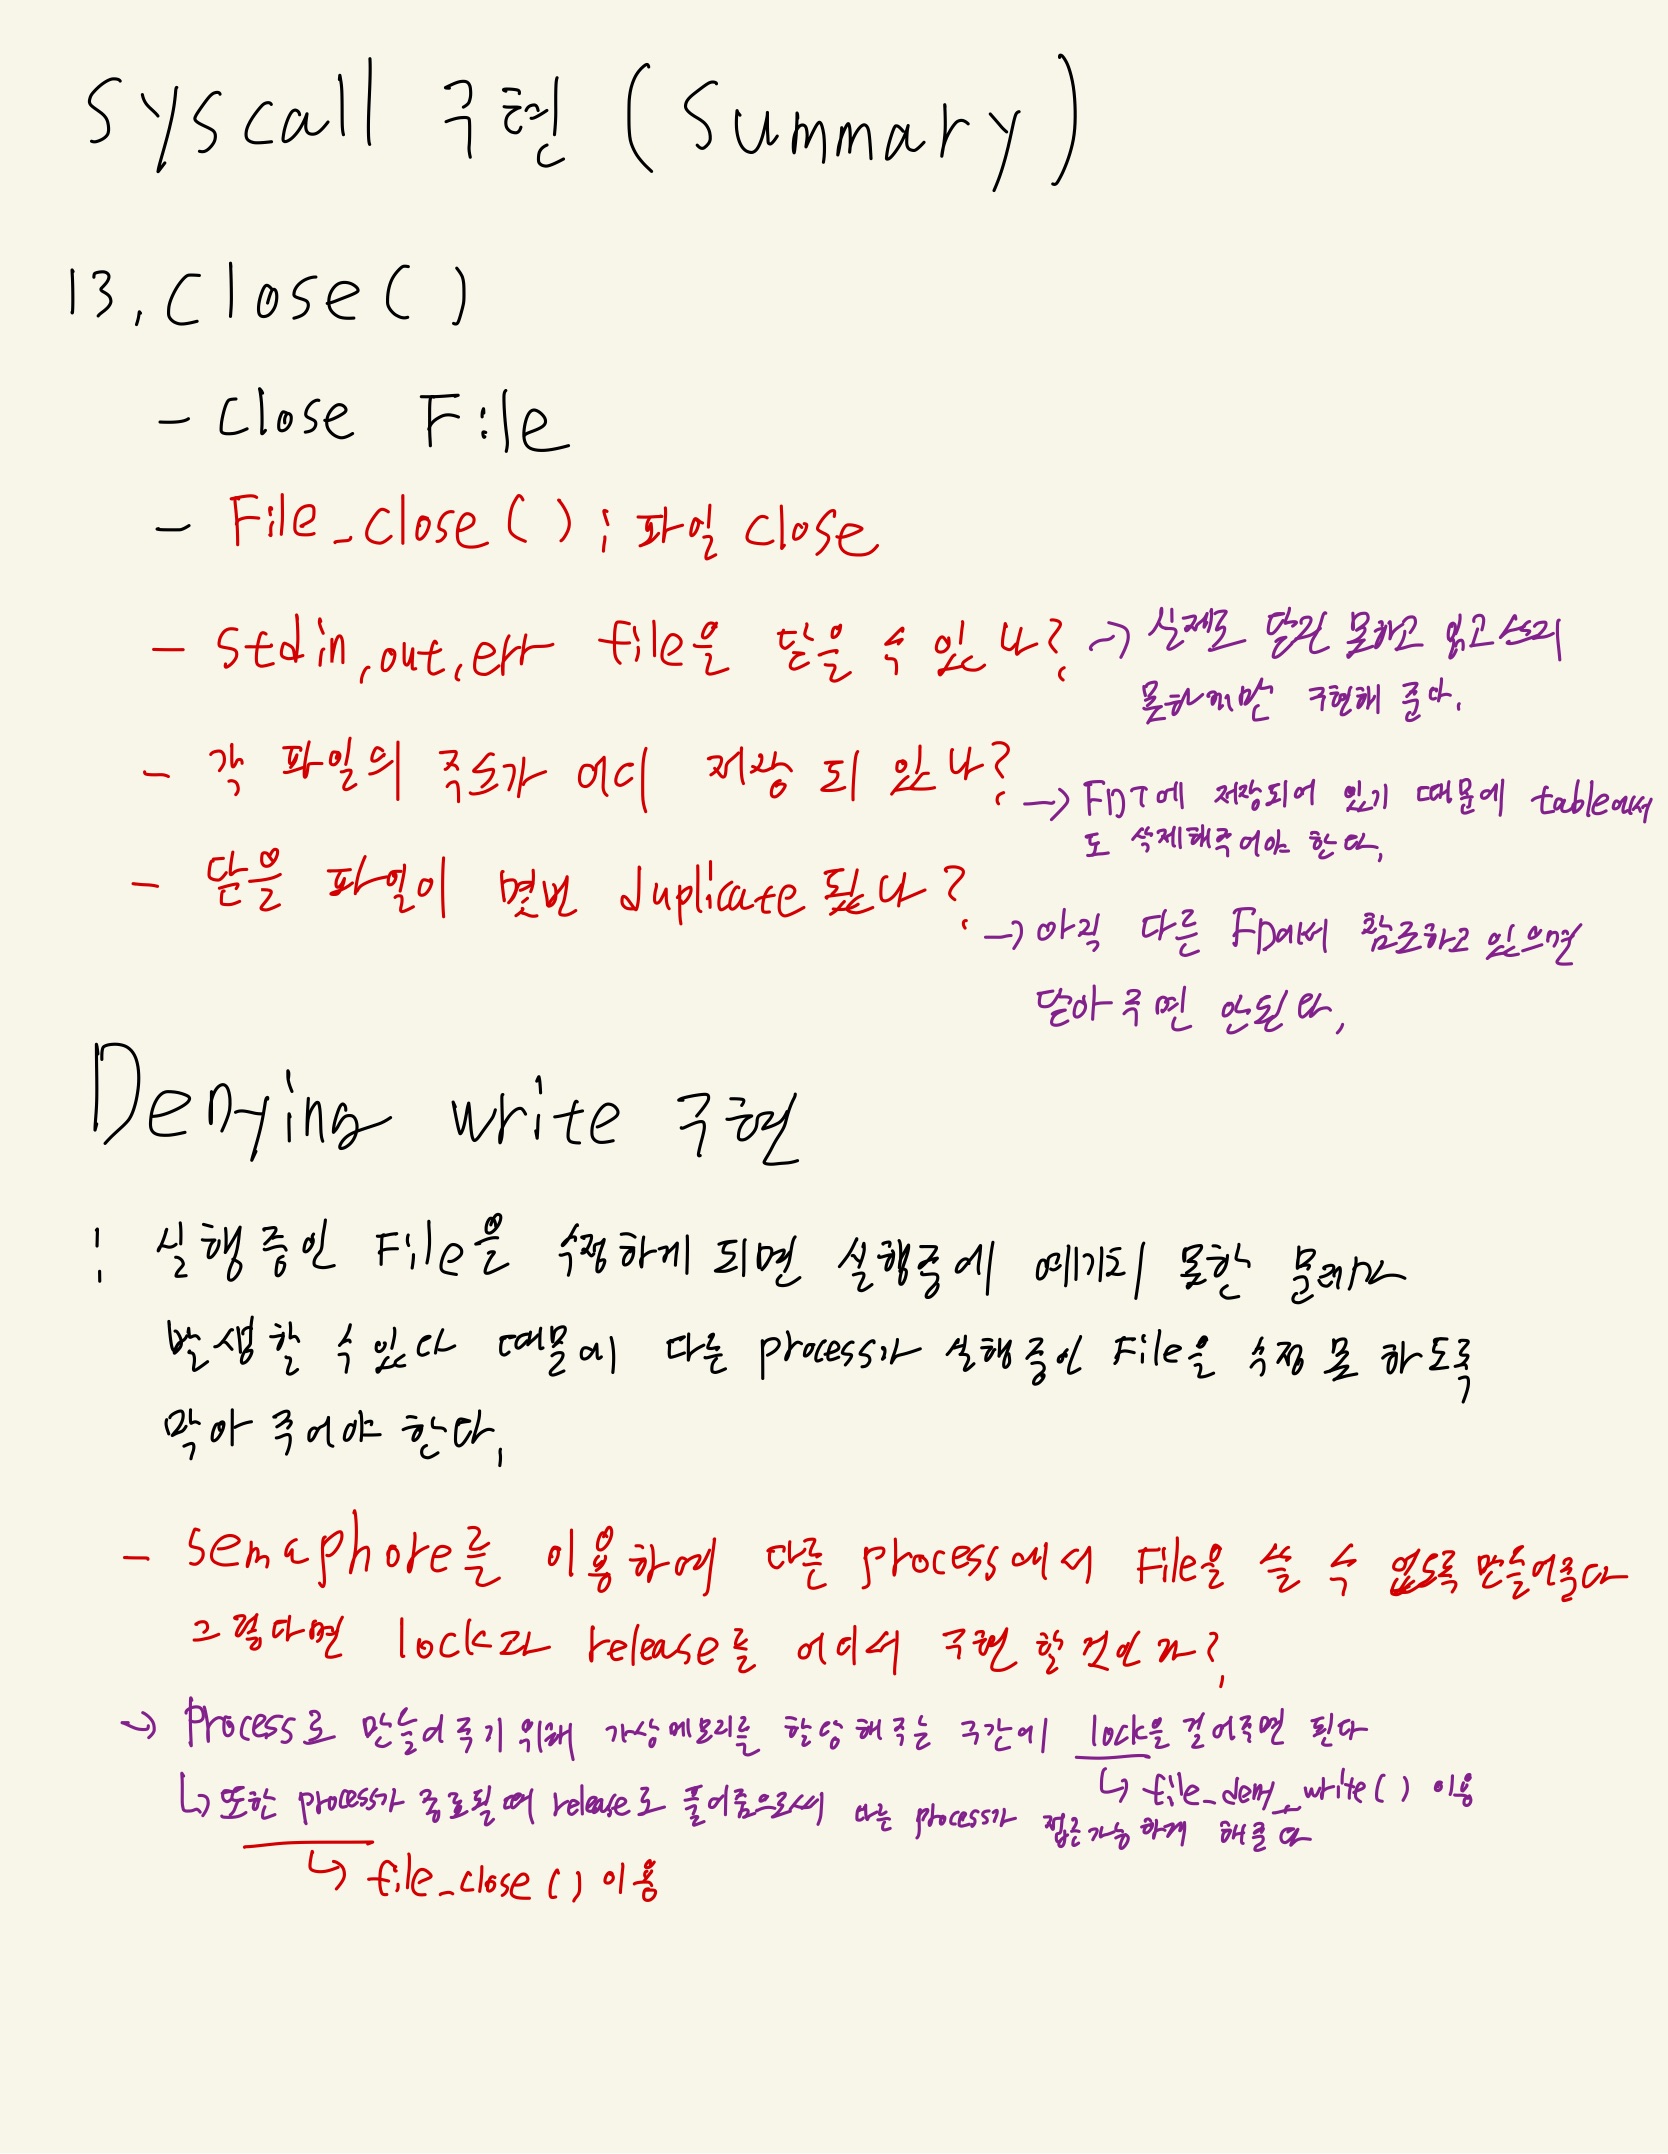 Syscall 구현 (Summary)
13. close( )
- close File
- File_close( ) ; 파일 close
- stdin, out, err file을 닫을 수 있나? → 실제로 닫진 못하고 읽고 쓰지
못하게만 구현해 준다.
- 각 파일의 주소가 어디 저장 되 있나?
→ FDT에 저장되어 있기 때문에 table에서
도 삭제해주어야 한다.
- 닫을 파일이 몇번 duplicate 됐나?
→ 아직 다른 FD에서 참조하고 있으면
닫아 주면 안된다.
Denying write 구현
: 실행 중인 File을 수정하게 되면 실행중에 예기치 못한 문제가
발생할 수 있다 때문에 다른 process가 실행중인 File을 수정 못 하도록
막아 주어야 한다.
- semaphore를 이용하여 다른 process에서 File을 쓸 수 없도록 만들어준다
그렇다면 lock과 release를 어디서 구현 할것인가?
→ Process로 만들어주기 위해 가상메모리를 할당해주는 구간에 lock을 걸어주면 된다
↳ file_deny_write( ) 이용
↳ 또한 process가 종료될때 release로 풀어줌으로써 다른 process가 접근가능하게 해준다
↳ file_close( ) 이용